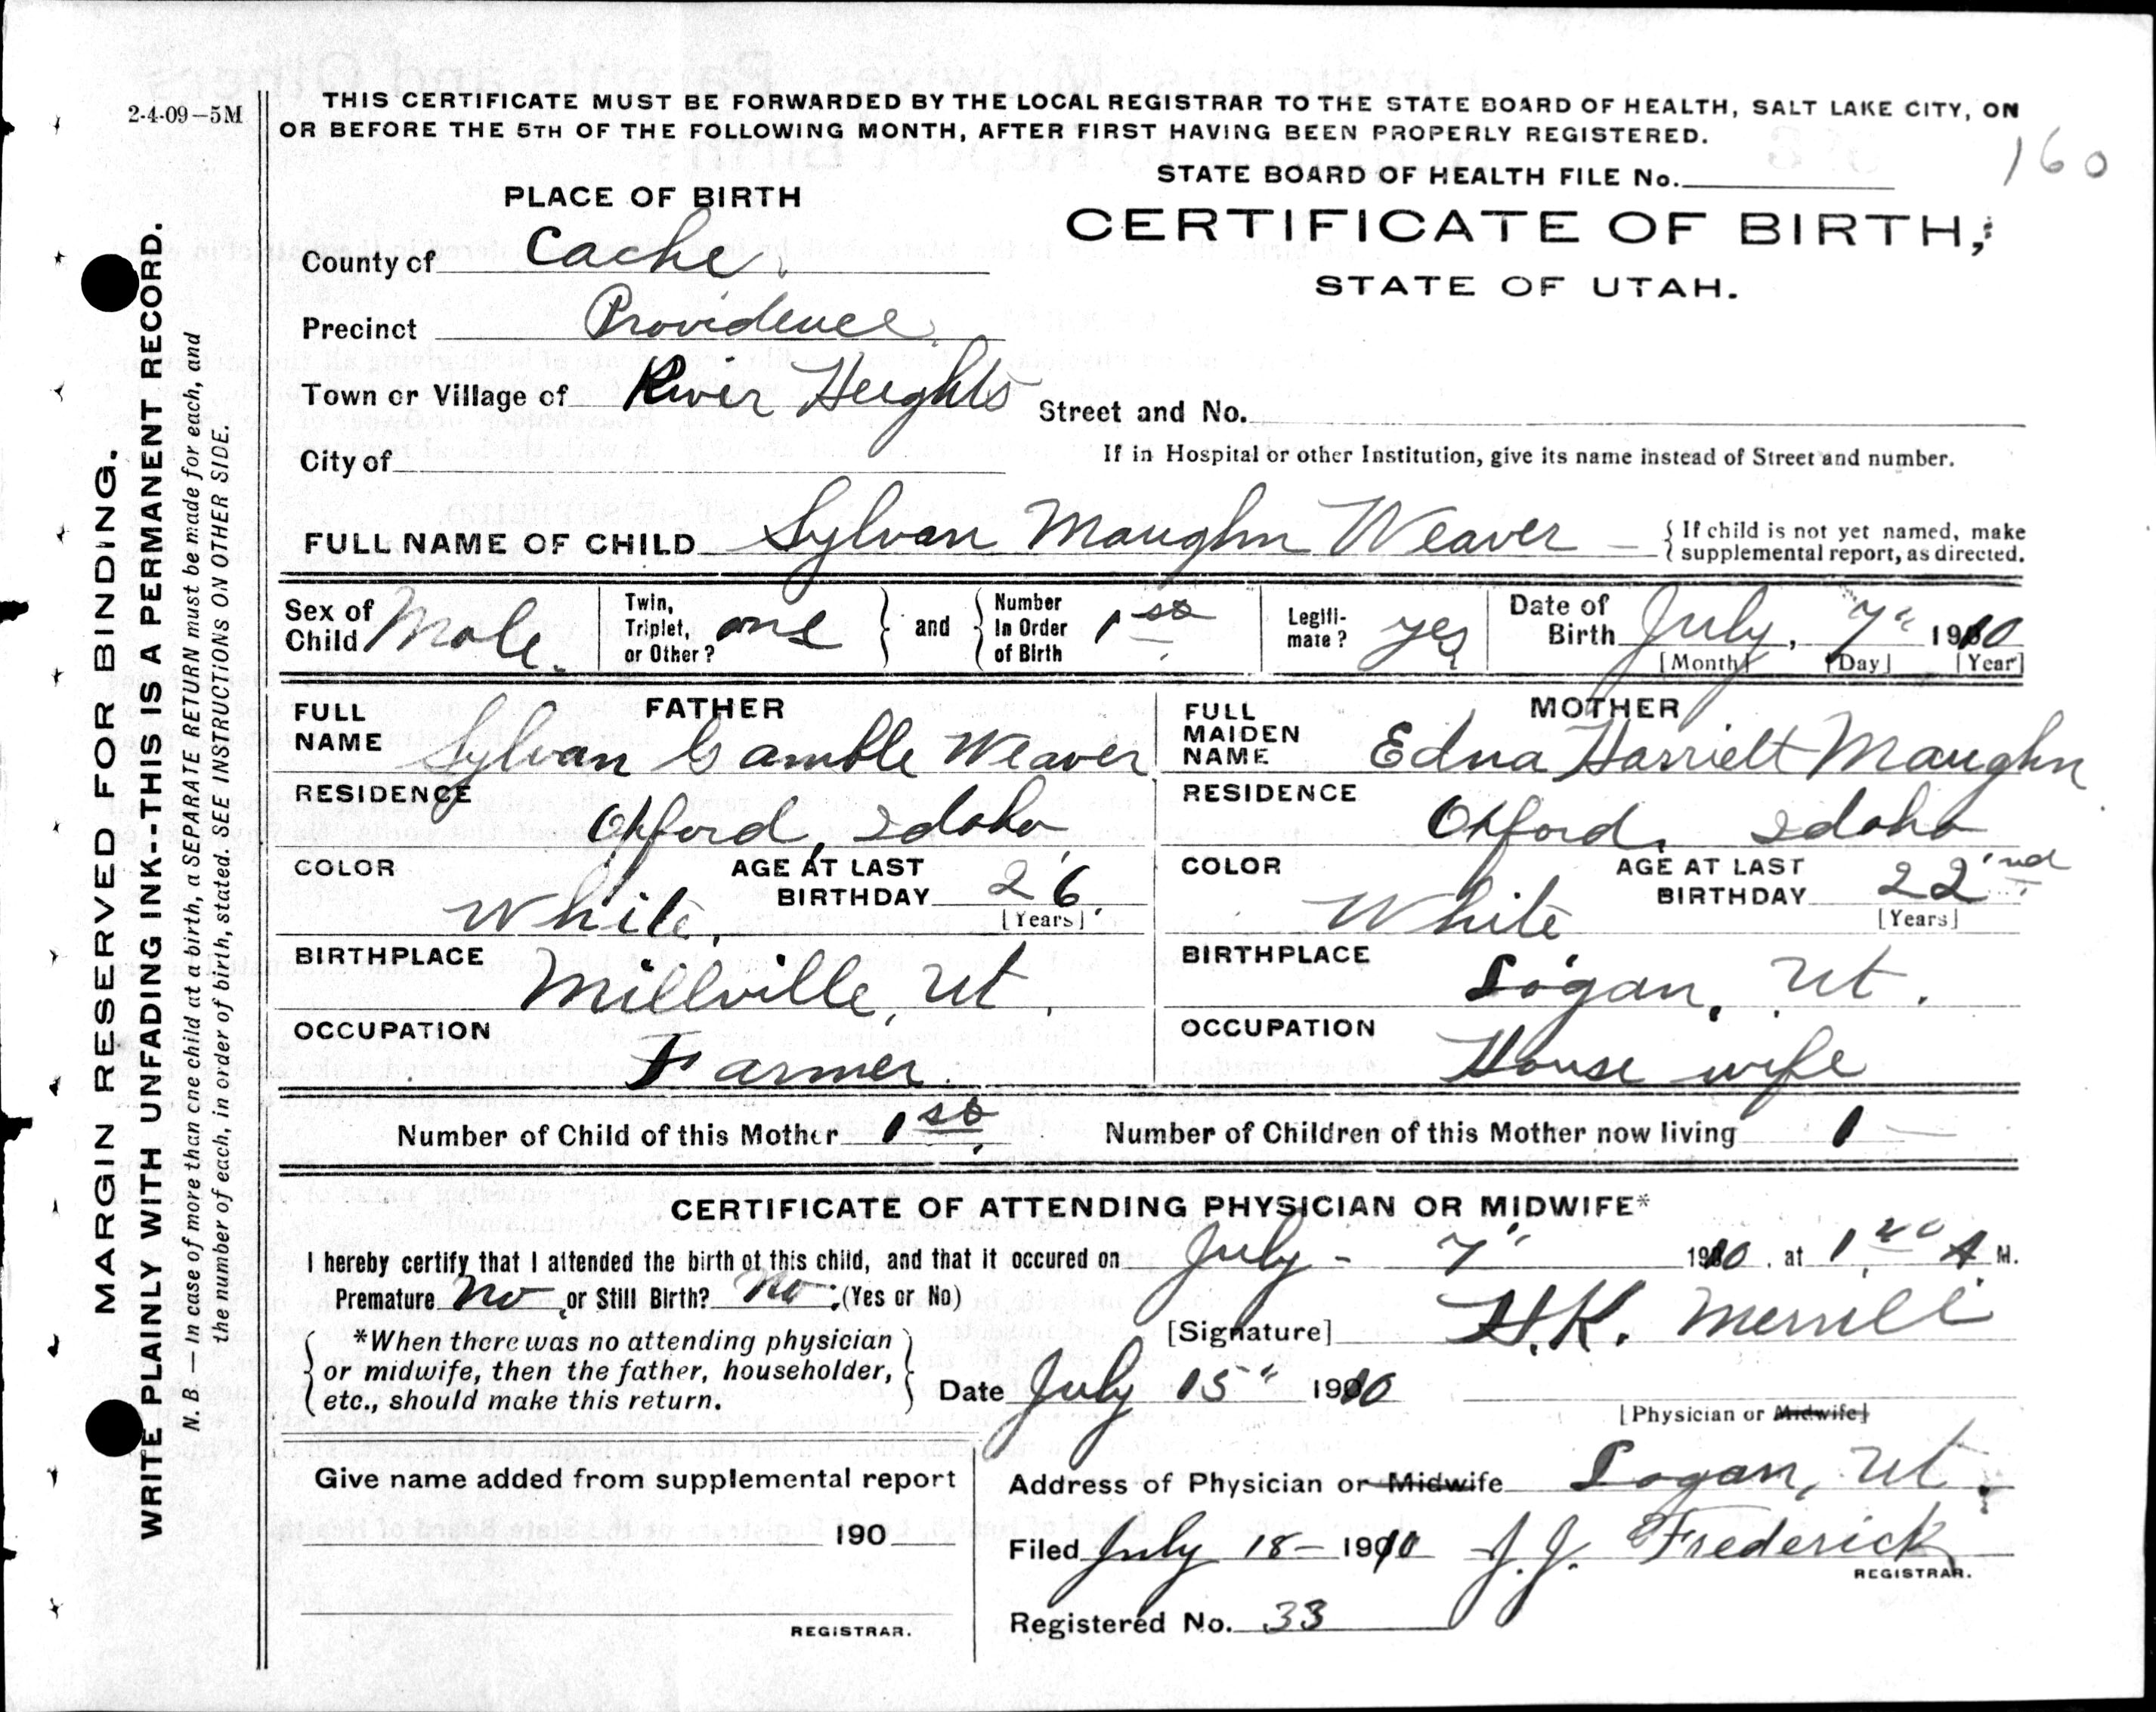 2-4-09–5M
THIS CERTIFICATE MUST BE FORWARDED BY THE LOCAL REGISTRAR TO THE STATE BOARD OF HEALTH, SALT LAKE CITY, ON
OR BEFORE THE 5TH OF THE FOLLOWING MONTH, AFTER FIRST HAVING BEEN PROPERLY REGISTERED.
160
STATE BOARD OF HEALTH FILE No.
PLACE OF BIRTH
CERTIFICATE OF BIRTH,
STATE OF UTAH.
County of Cache
Precinct Providence
Town or Village of River Heights
Street and No.
City of
If in Hospital or other Institution, give its name instead of Street and number.
FULL NAME OF CHILD Sylvan Maughn Weaver { If child is not yet named, make
supplemental report, as directed.
Sex of Child Male. Twin, Triplet, or Other? one } and { Number In Order of Birth 1st Legiti- mate? yes Date of Birth July, 7" 1910
[Month] [Day] [Year]
FATHER
FULL NAME Sylvan Gamble Weaver
RESIDENCE
Oxford, Idaho
COLOR White, AGE AT LAST BIRTHDAY 26.
[Years]
BIRTHPLACE
Millville, Ut.
OCCUPATION
Farmer.
MOTHER
FULL MAIDEN NAME Edna Harriett Maughn
RESIDENCE
Oxford, Idaho
COLOR White AGE AT LAST BIRTHDAY 22nd
[Years]
BIRTHPLACE
Logan, Ut.
OCCUPATION
House wife
Number of Child of this Mother 1st Number of Children of this Mother now living 1
CERTIFICATE OF ATTENDING PHYSICIAN OR MIDWIFE*
I hereby certify that I attended the birth of this child, and that it occured on July - 7" 1910, at 1 A M.
Premature No or Still Birth? No (Yes or No)
[Signature] H.K. Merrill
*When there was no attending physician
or midwife, then the father, householder,
etc., should make this return.
Date July 15" 1910
[Physician or Midwife]
Give name added from supplemental report
190
REGISTRAR.
Address of Physician or Midwife Logan, Ut.
Filed July 18 - 1910 J. J. Frederick
REGISTRAR.
Registered No. 33
MARGIN RESERVED FOR BINDING.
WRITE PLAINLY WITH UNFADING INK--THIS IS A PERMANENT RECORD.
N. B. — In case of more than one child at a birth, a SEPARATE RETURN must be made for each, and
the number of each, in order of birth, stated. SEE INSTRUCTIONS ON OTHER SIDE.